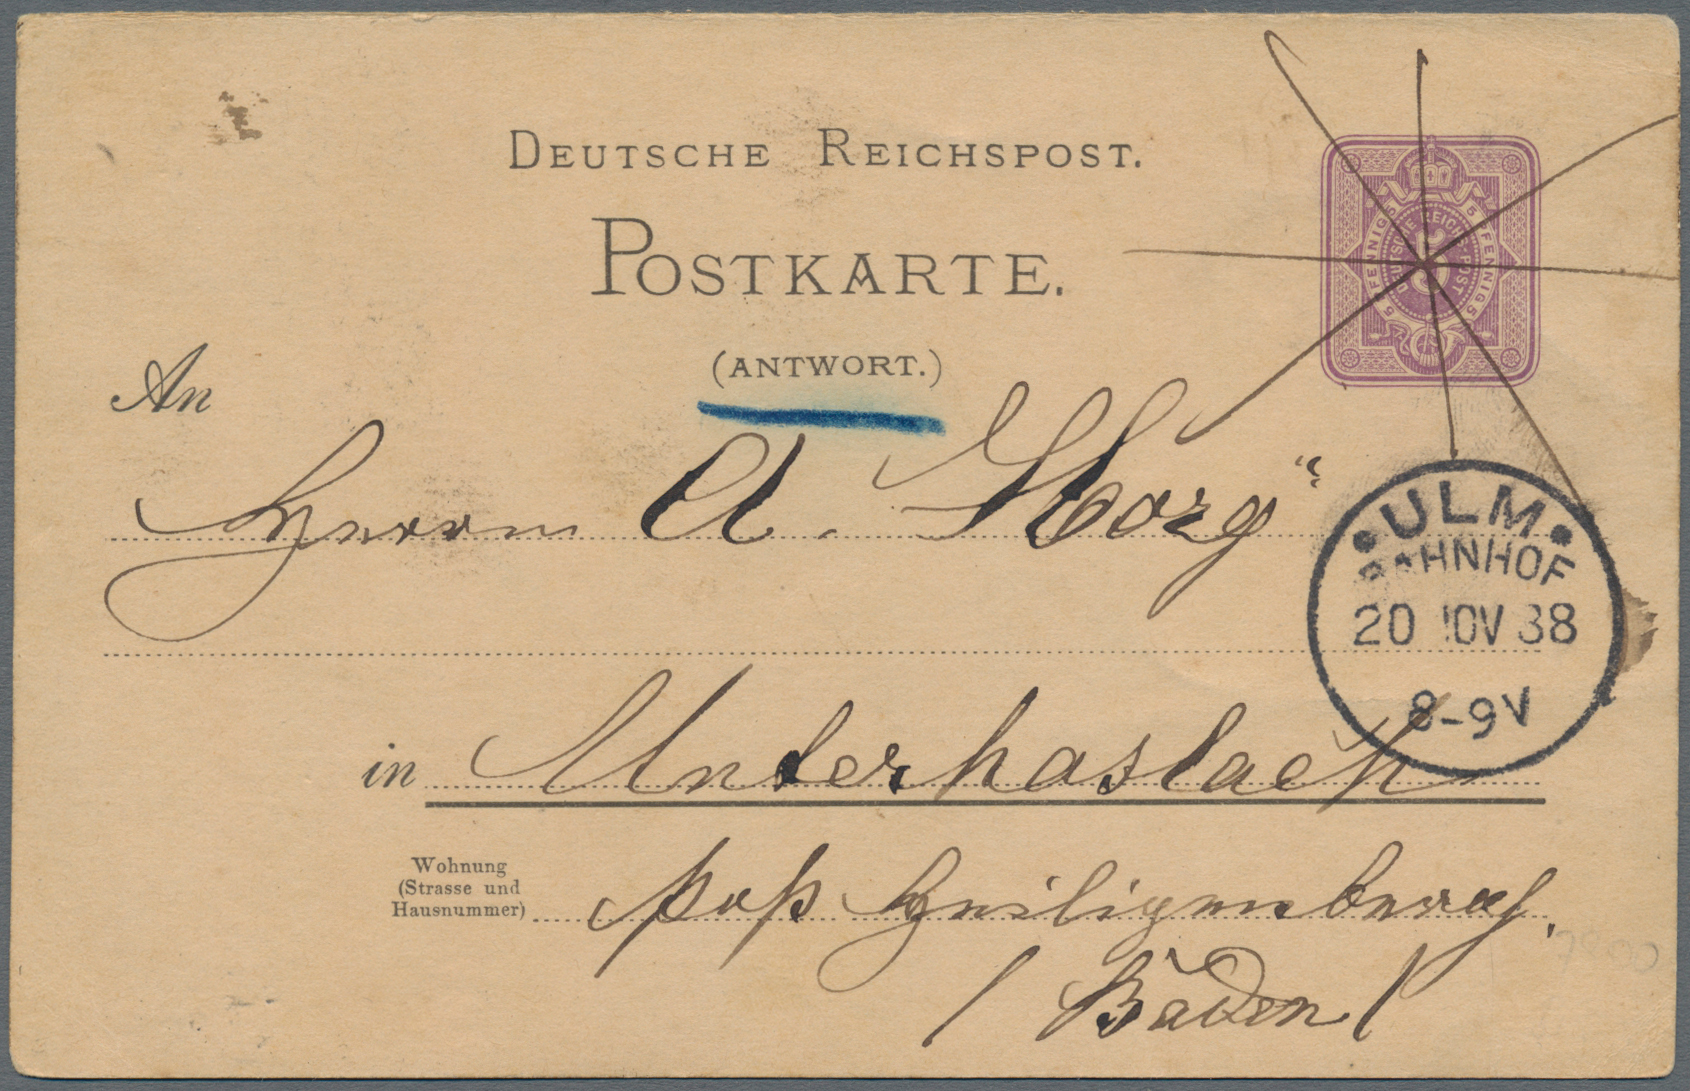 DEUTSCHE REICHSPOST.
POSTKARTE.
(ANTWORT.)
5 PFENNIG 5 PFENNIG 5
DEUTSCHE REICHS-POST
5
An
Herrn A. Storz
ULM
BAHNHOF
20 NOV 88
8-9V
in Unterhaslach
Wohnung
(Strasse und
Hausnummer)
post Heiligenberg,
/ Baden /